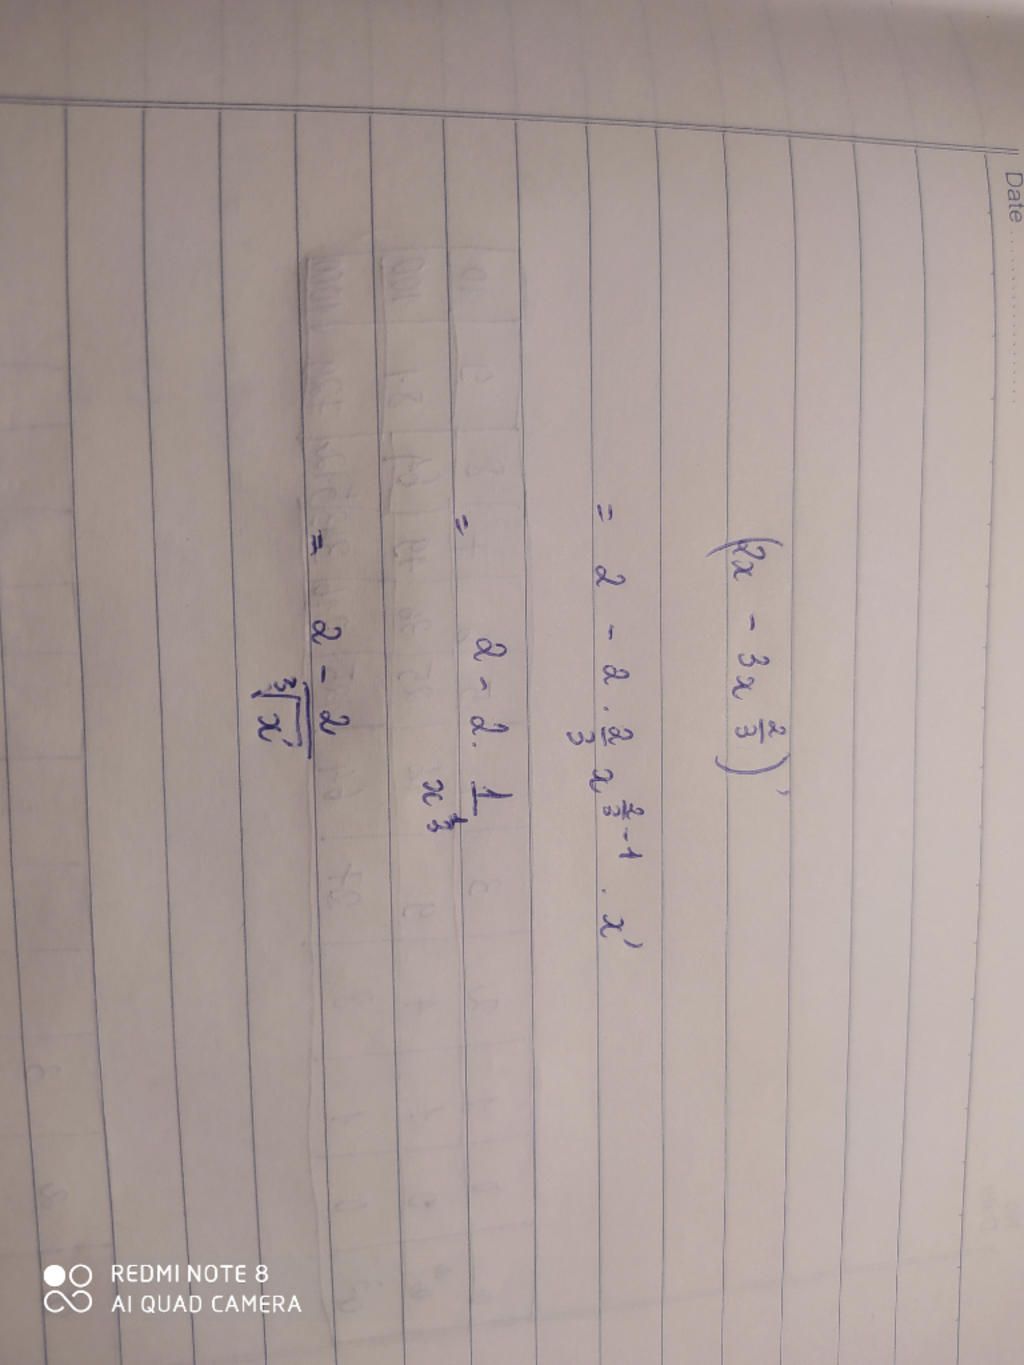 Date ....................
(2x - 3x^{2/3})'
= 2 - 2 . \frac{2}{3} x^{\frac{2}{3} - 1} . x'
= 2 - 2 . \frac{1}{x^{\frac{1}{3}}}
= 2 - \frac{2}{\sqrt[3]{x'}}
REDMI NOTE 8
AI QUAD CAMERA